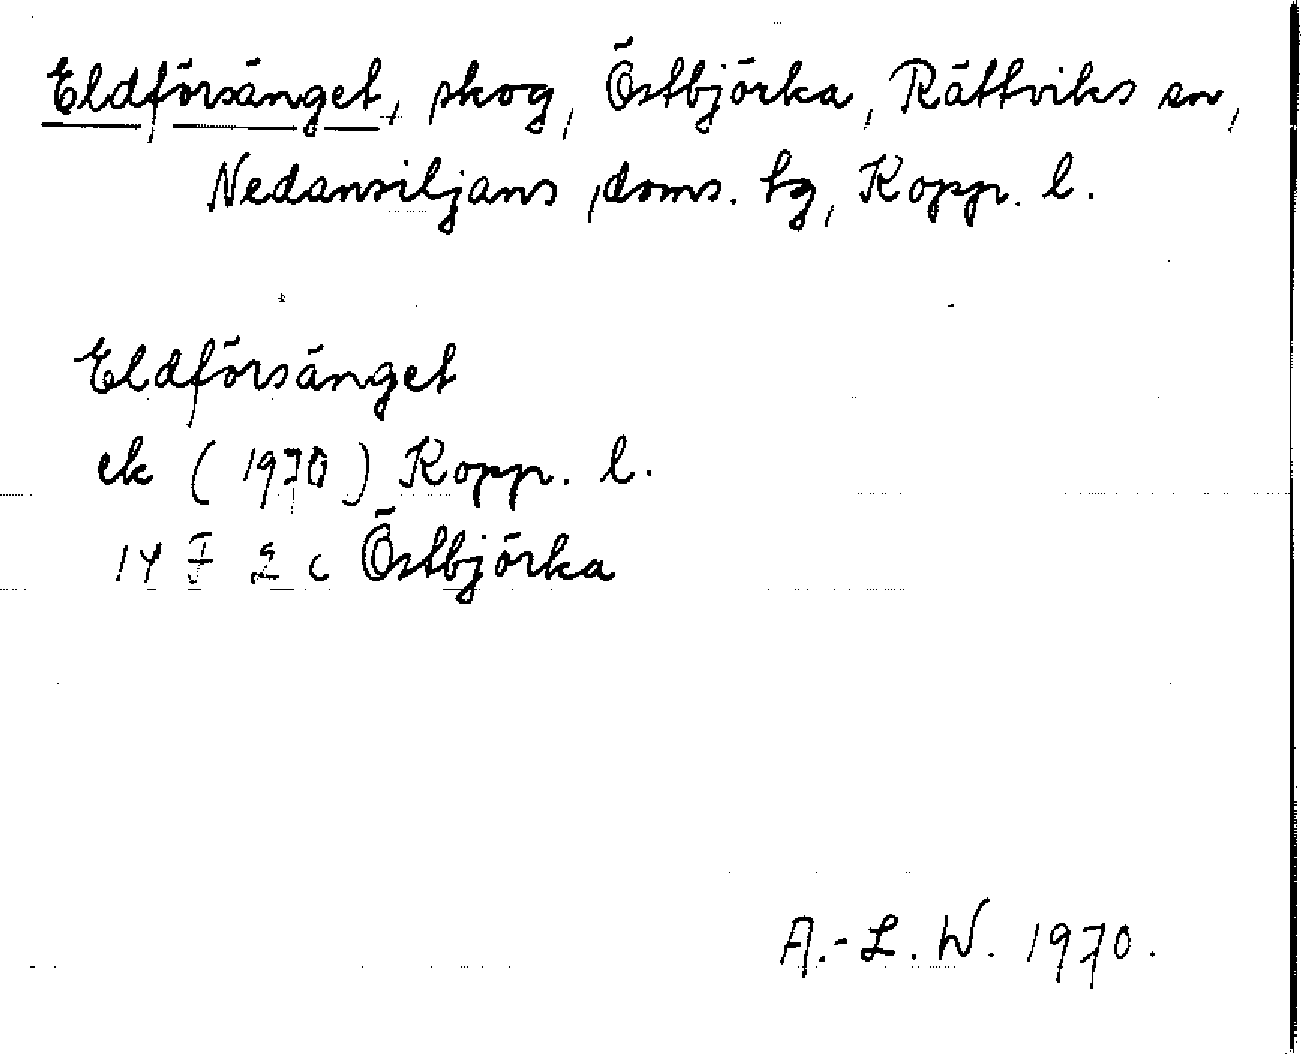 Eldförsänget, skog, Östbjörka, Rättviks sn,
Nedansiljans doms. hg, Kopp. l.
Eldförsänget
ek (1970) Kopp. l.
14 F 2 c Östbjörka
A.-L. W. 1970.